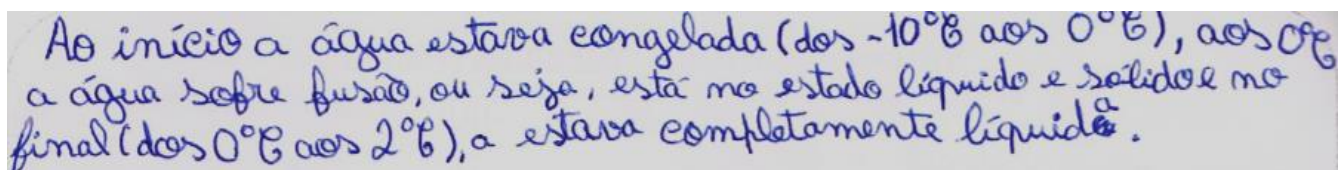 Ao início a água estava congelada (dos -10°C aos 0°C), aos 0°C
a água sofre fusão, ou seja, está no estado líquido e sólido e no
final (dos 0°C aos 2°C), a estava completamente líquida.